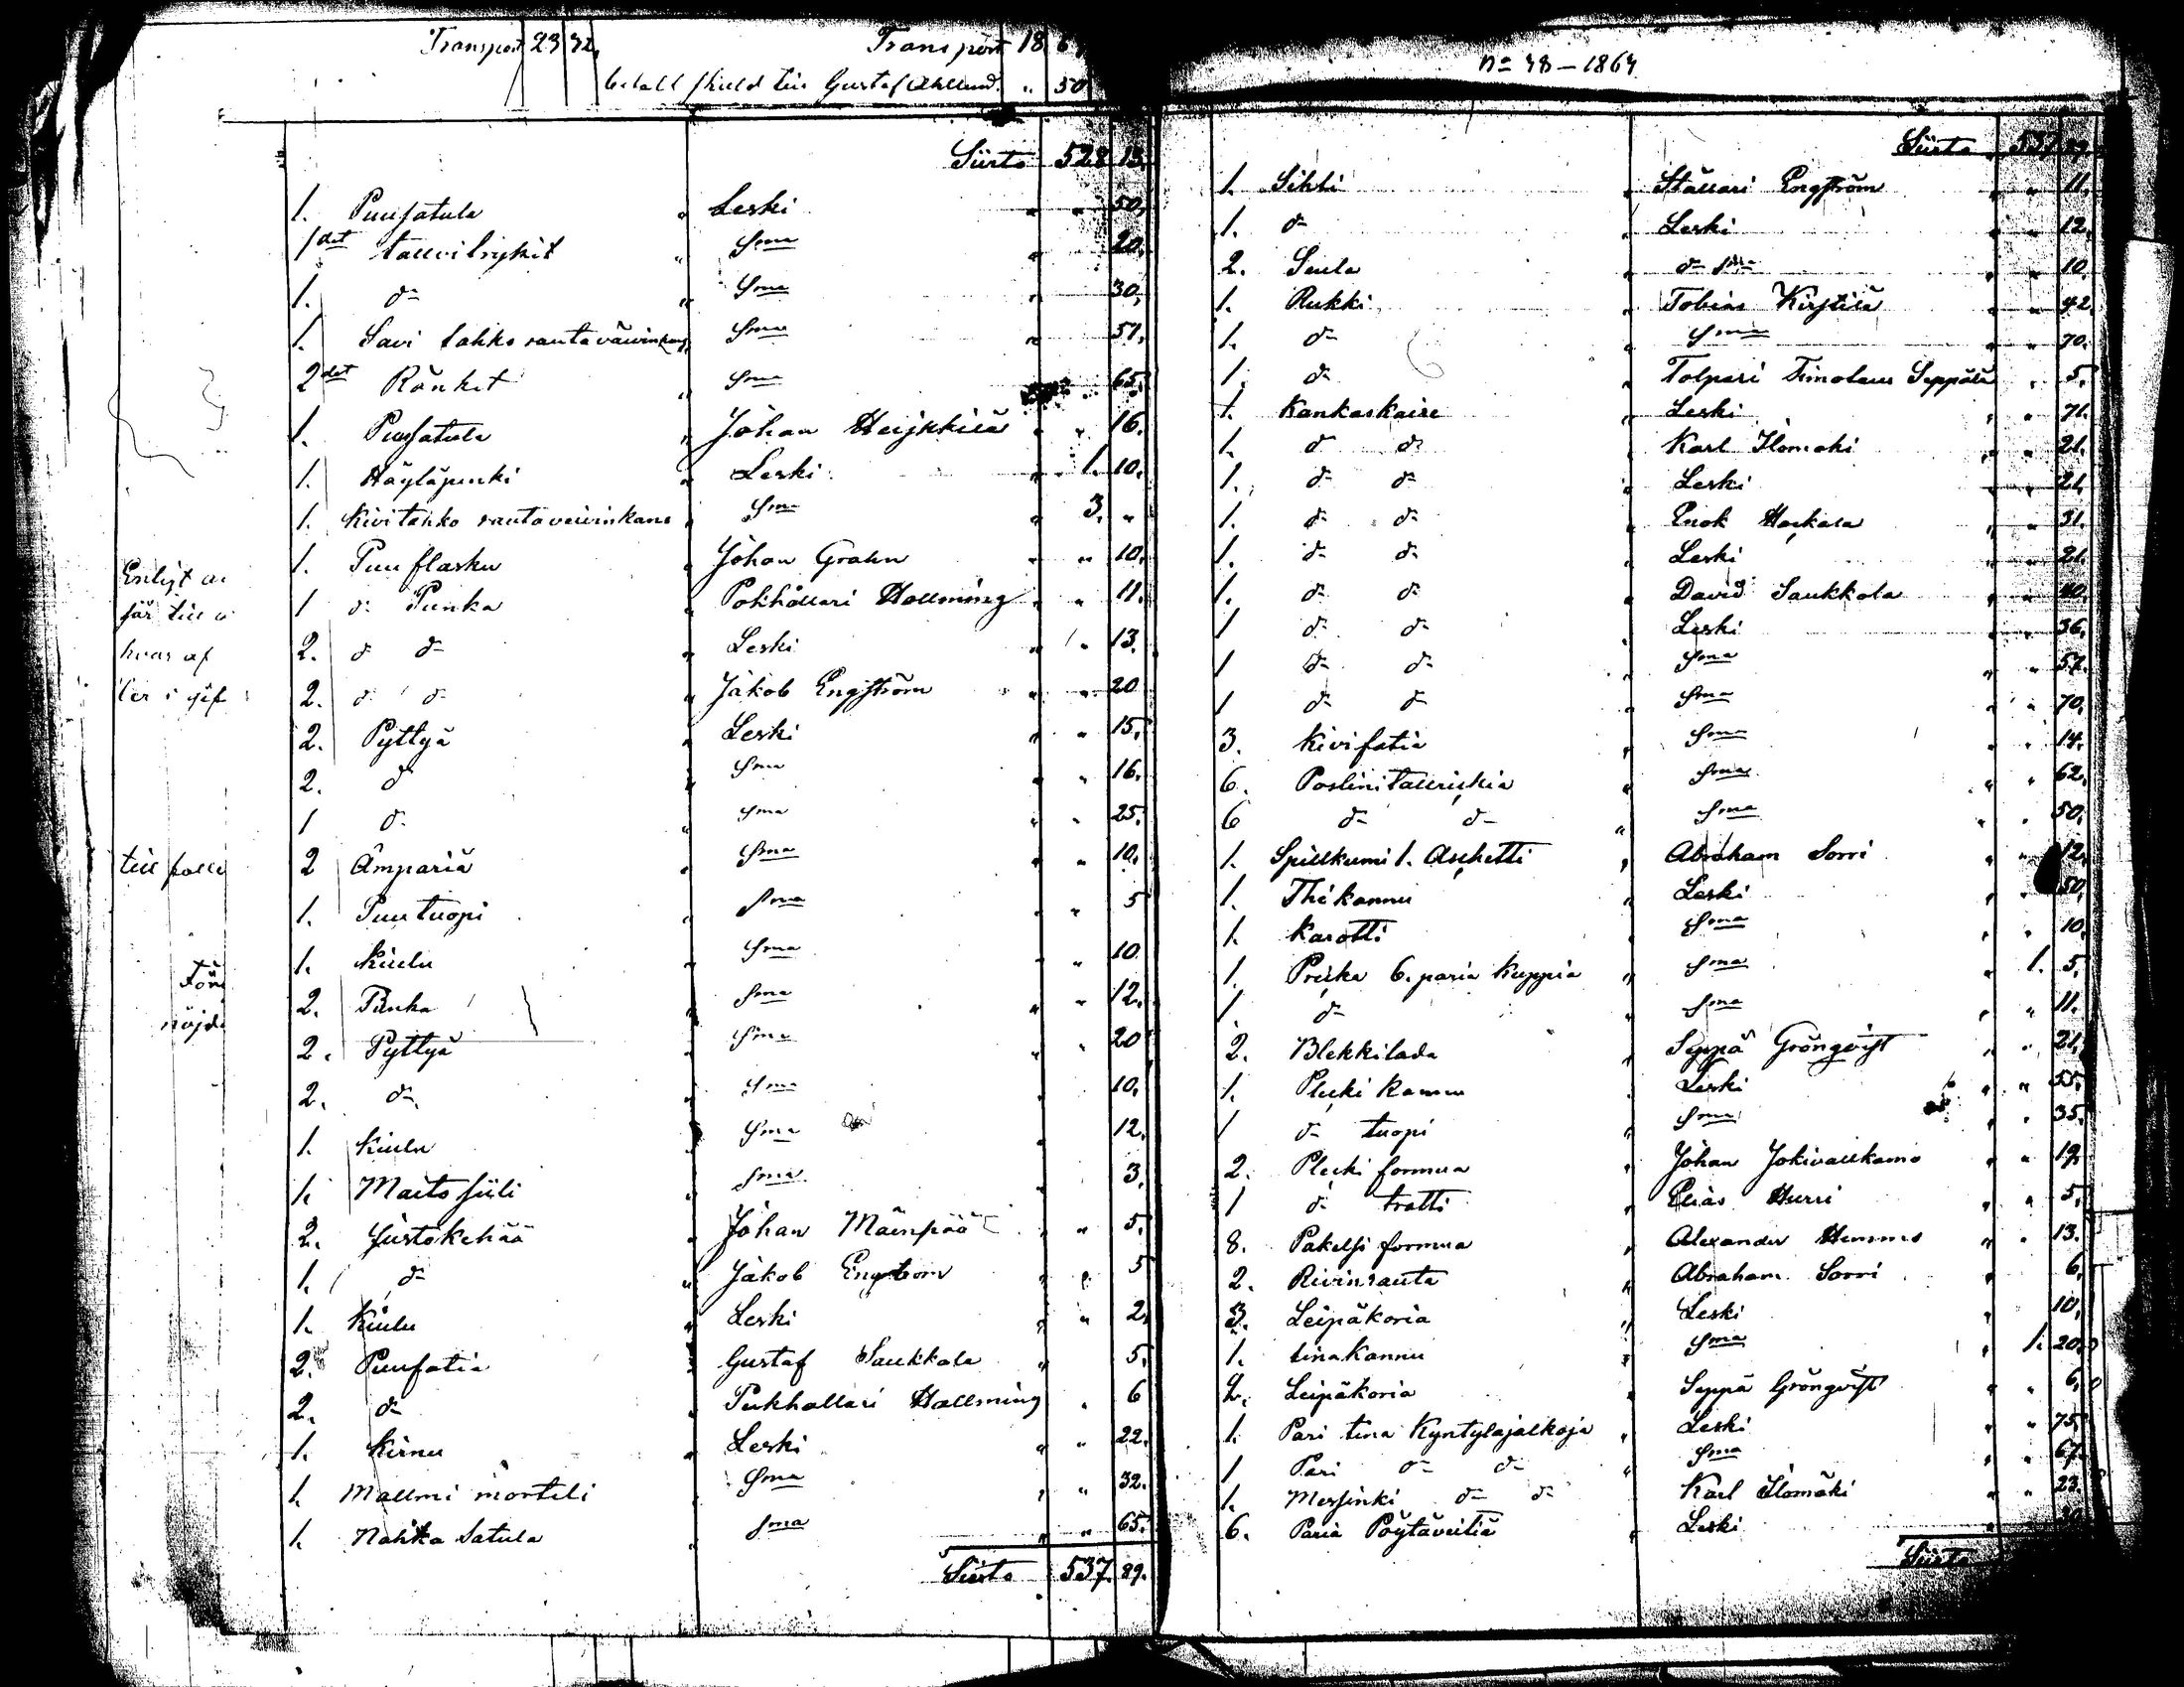 Transport 23 32,
Transport 18 6
betalt skuld till Gustaf Ahllund. " 50
Siirto 528 13.
1. Puusatula " Leski " " 50,
1 det tallvilrykit " Sma " 20.
1. do " Sma " 30,
1. Savi tahko rautaväivin kans Sma " 51,
2 det Rönkit " Sma 65.
1. Puusatula " Johan Heijkkilä " " 16.
1. Höyläpenki " Leski " 1. 10.
1. Kivitahko rautaveivin kans " Sma " 3. "
1. Puuflasku " Johan Grahn " " 10.
1 do Punka " Pokhållari Hollming " " 11.
2. do do " Leski " " 13.
2. do do " Jakob Engström " " 20
2. Pyttyä " Leski " " 15.
2. do " Sma " " 16.
1 do " Sma " " 25.
2 Ämpäriä " Sma " " 10.
1. Puutuopi " Sma " " 5
1. Kiulu " Sma " 10
2. Punka " Sma " " 12.
2. Pyttyä " Sma " 20
2. do " Sma " 10.
1. Kiulu " Sma " 12.
1. Maito siili Sma " 3.
2. Justokehää " Johan Mäenpää " " 5.
1. do " Jakob Engstrom " " 5
1. Kiulu " Leski " " 2,
2. Puufatia " Gustaf Saukkola " 5.
2. do " Pukhallari Hollming " 6
1. Kirnu " Leski " " 22.
1. Mallmi mortteli Sma " " 32.
1. Nahka Satula " Sma " " 65.
Siirto 537. 89.
Enligt
får till
hvar af
till
nöjd
No 48 – 1864
Siirto 537 89
1. Sihti " Stållari Engström " " 11.
1. do " Leski " " 12.
2. Seula " do Sma " " 10.
1. Rukki " Tobias Kirstilä " " 42.
1. do " Sma " " 70.
1. do " Tolpari Timoteus Seppälä " 5.
1. Kankaskaire " Leski " " 71.
1. do do Karl Ilomäki " " 21.
1. do do " Leski " " 21.
1. do do " Enok Hockala " " 31.
1. do do " Leski " " 21.
1. do do " David Saukkola " " 40.
1 do do " Leski " " 36.
1 do do " Sma " " 57.
1 do do Sma " " 70.
3. Kivifatia " Sma " " 14.
6. Poslinitallriikia " Sma " " 62.
6 do do " Sma " " 50.
1. Spillkumi 1. Aschetti " Abraham Sorri " " 12.
1. Thikannu " Leski " " 50.
1. Karotti Sma " " 10.
1. Preika 6. paria kuppia " Sma " 1. 5.
1 do " Sma " " 11.
2. Blekkilada " Seppä Grönqvist " " 21.
1. Plecki kannu " Leski " " 55.
1 do tuopi " Sma " " 35.
2. Plecki formua " Johan Jokivallkamo " " 19.
1 do tratti " Elias Hurri " " 5.
8. Pakelsi formua " Alexander Hemmo " " 13.
2. Rivinrauta " Abraham Sorri " 6.
3. Leipäkoria " Leski " 10,
1. tinakannu " Sma " 1. 20.
2. Leipäkoria " Seppä Grönqvist " " 6.
1. Pari tina Kyntylajalkoja " Leski " " 75.
1 Pari do do " Sma " " 67.
1. Messinki do do Karl Ilomäki " " 23.
6. Paria Pöytäveitiä " Leski "
Siirto